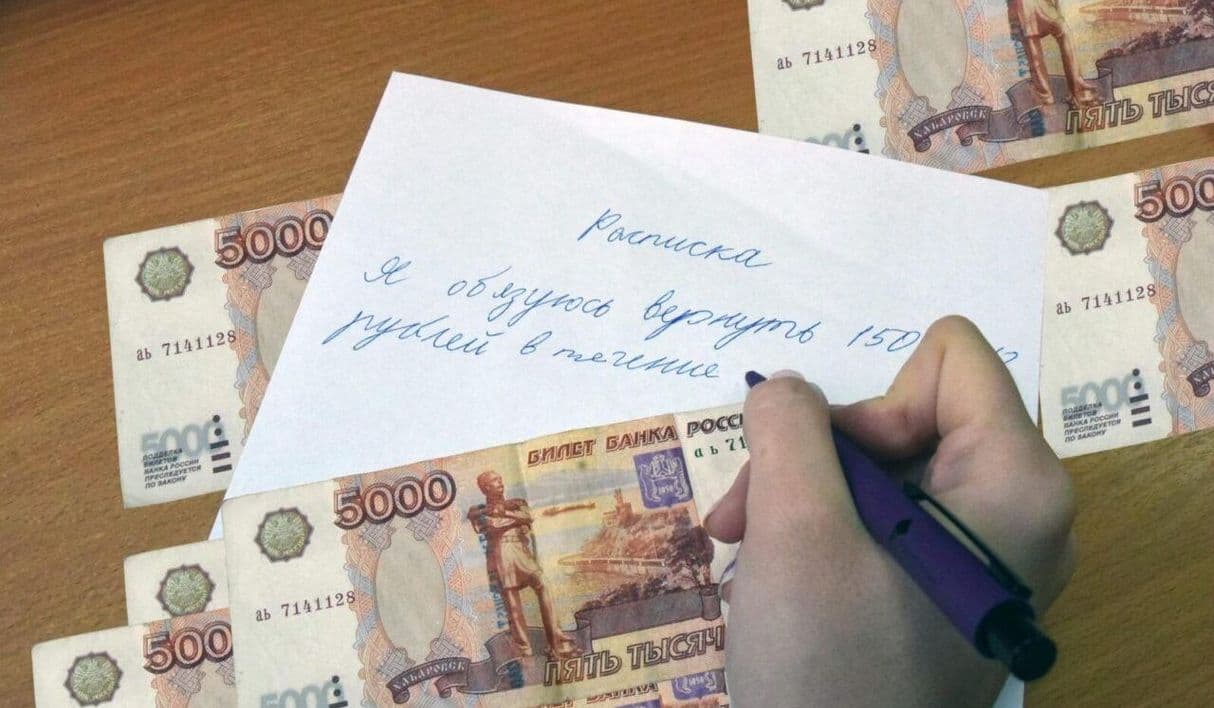 аь 7141128
ХАБАРОВСК
ПЯТЬ
Расписка
Я обязуюсь вернуть
рублей в течение
5000
аь 7141128
5000
ПОДДЕЛКА
БИЛЕТОВ
БАНКА РОССИИ
ПРЕСЛЕДУЕТСЯ
ПО ЗАКОНУ
аь 7141128
5000
ПОДДЕЛКА
БИЛЕТОВ
БАНКА РОССИИ
ПРЕСЛЕДУЕТСЯ
ПО ЗАКОНУ
БИЛЕТ БАНКА
5000
1858
аь 7141128
ХАБАРОВСК
ПЯТЬ
5000
БАНКА